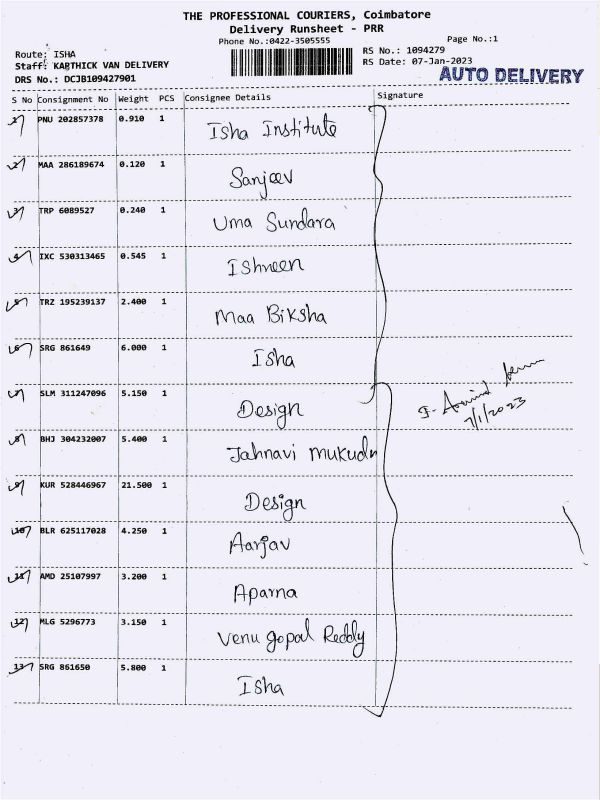 THE PROFESSIONAL COURIERS, Coimbatore
Delivery Runsheet - PRR
Phone No.:0422-3505555
Page No.:1
Route: ISHA
RS No.: 1094279
Staff: KARTHICK VAN DELIVERY
RS Date: 07-Jan-2023
DRS No.: DCJB109427901
AUTO DELIVERY
S No Consignment No Weight PCS Consignee Details Signature
1 PNU 202857378 0.910 1 Isha Institute
2 MAA 286189674 0.120 1 Sanjeev
3 TRP 6089527 0.240 1 Uma Sundara
4 IXC 530313465 0.545 1 Ishneen
5 TRZ 195239137 2.400 1 Maa Biksha
6 SRG 861649 6.000 1 Isha
7 SLM 311247096 5.150 1 Design
7/1/2023
8 BHJ 304232007 5.400 1 Jahnavi Mukudn
9 KUR 528446967 21.500 1 Design
10 BLR 625117028 4.250 1 Aarjav
11 AMD 25107997 3.200 1 Aparna
12 MLG 5296773 3.150 1 Venu gopal Reddy
13 SRG 861650 5.800 1 Isha